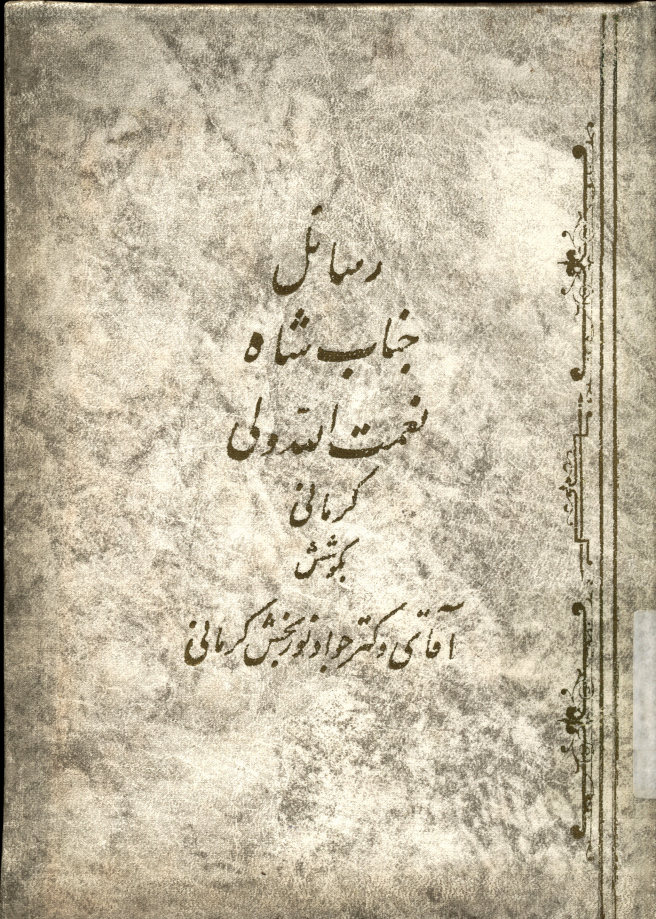 رسائل
جناب شاه
نعمت الله ولی
کرمانی
بکوشش
آقای دکتر جواد نوربخش کرمانی